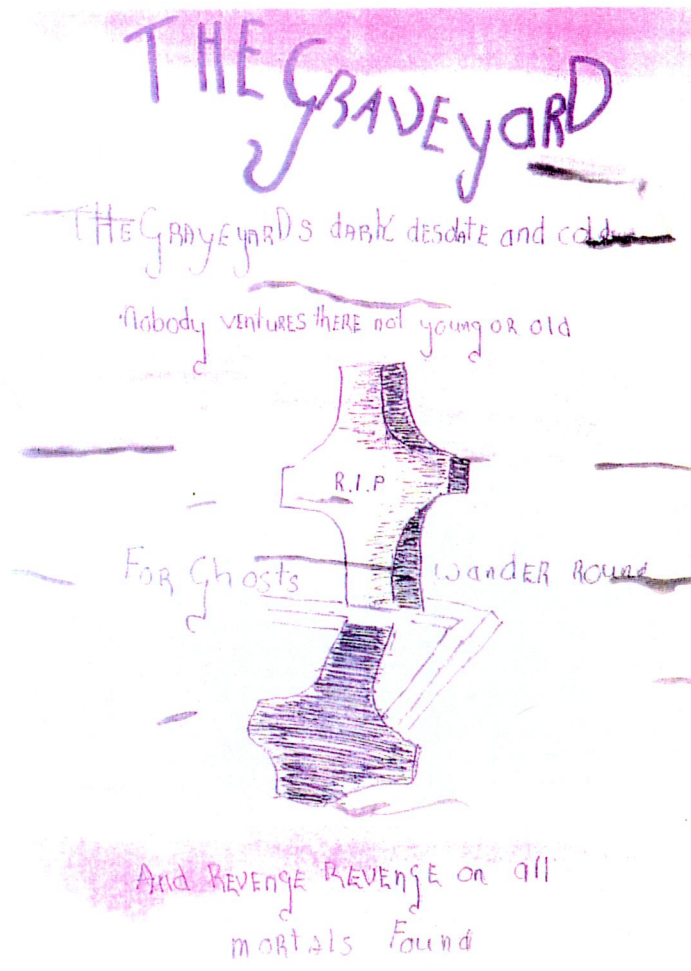 THE GRAVEyaRD
THE GRAVEyaRDS dARK desolate and cold
Nobody ventures there not young or old
R.I.P
For Ghosts wander round
And Revenge Revenge on all
mortals Found